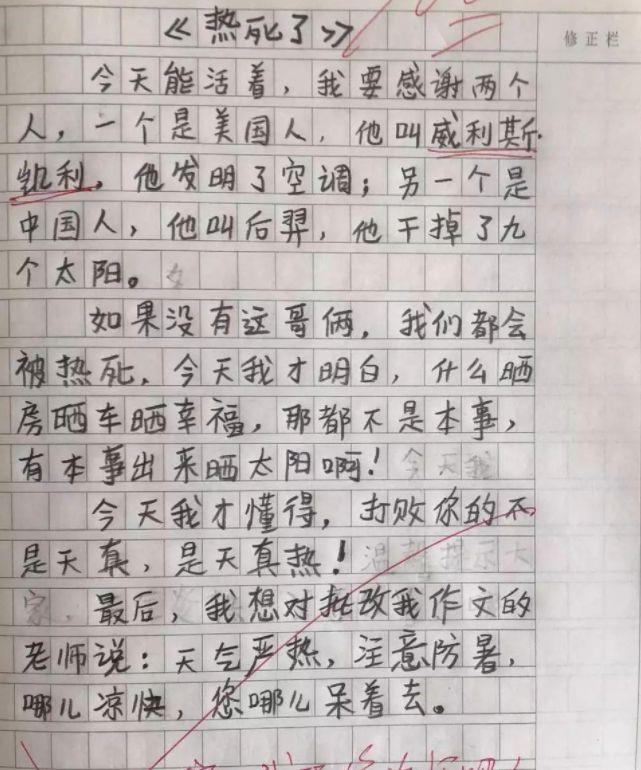 《热死了》
修正栏
今天能活着，我要感谢两个
人，一个是美国人，他叫威利斯·
凯利，他发明了空调；另一个是
中国人，他叫后羿，他干掉了九
个太阳。
如果没有这哥俩，我们都会
被热死，今天我才明白，什么晒
房晒车晒幸福，那都不是本事，
有本事出来晒太阳啊！今天我
今天我才懂得，打败你的不
是天真，是天真热！温馨提示大
家，最后，我想对批改我作文的
老师说：天气严热，注意防暑，
哪儿凉快，您哪儿呆着去。